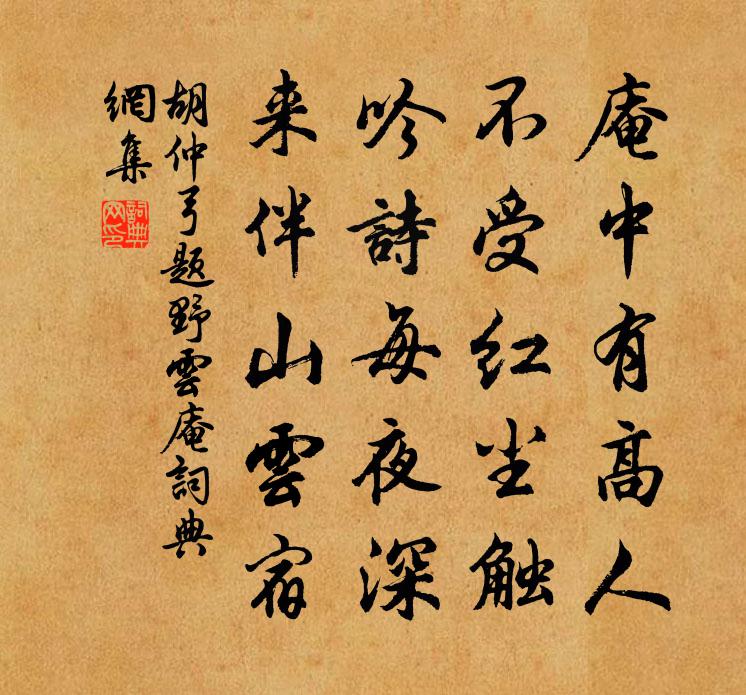 庵中有高人
不受红尘触
吟詩每夜深
来伴山雲宿
胡仲弓题野雲庵詞典
網集
詞典
网印